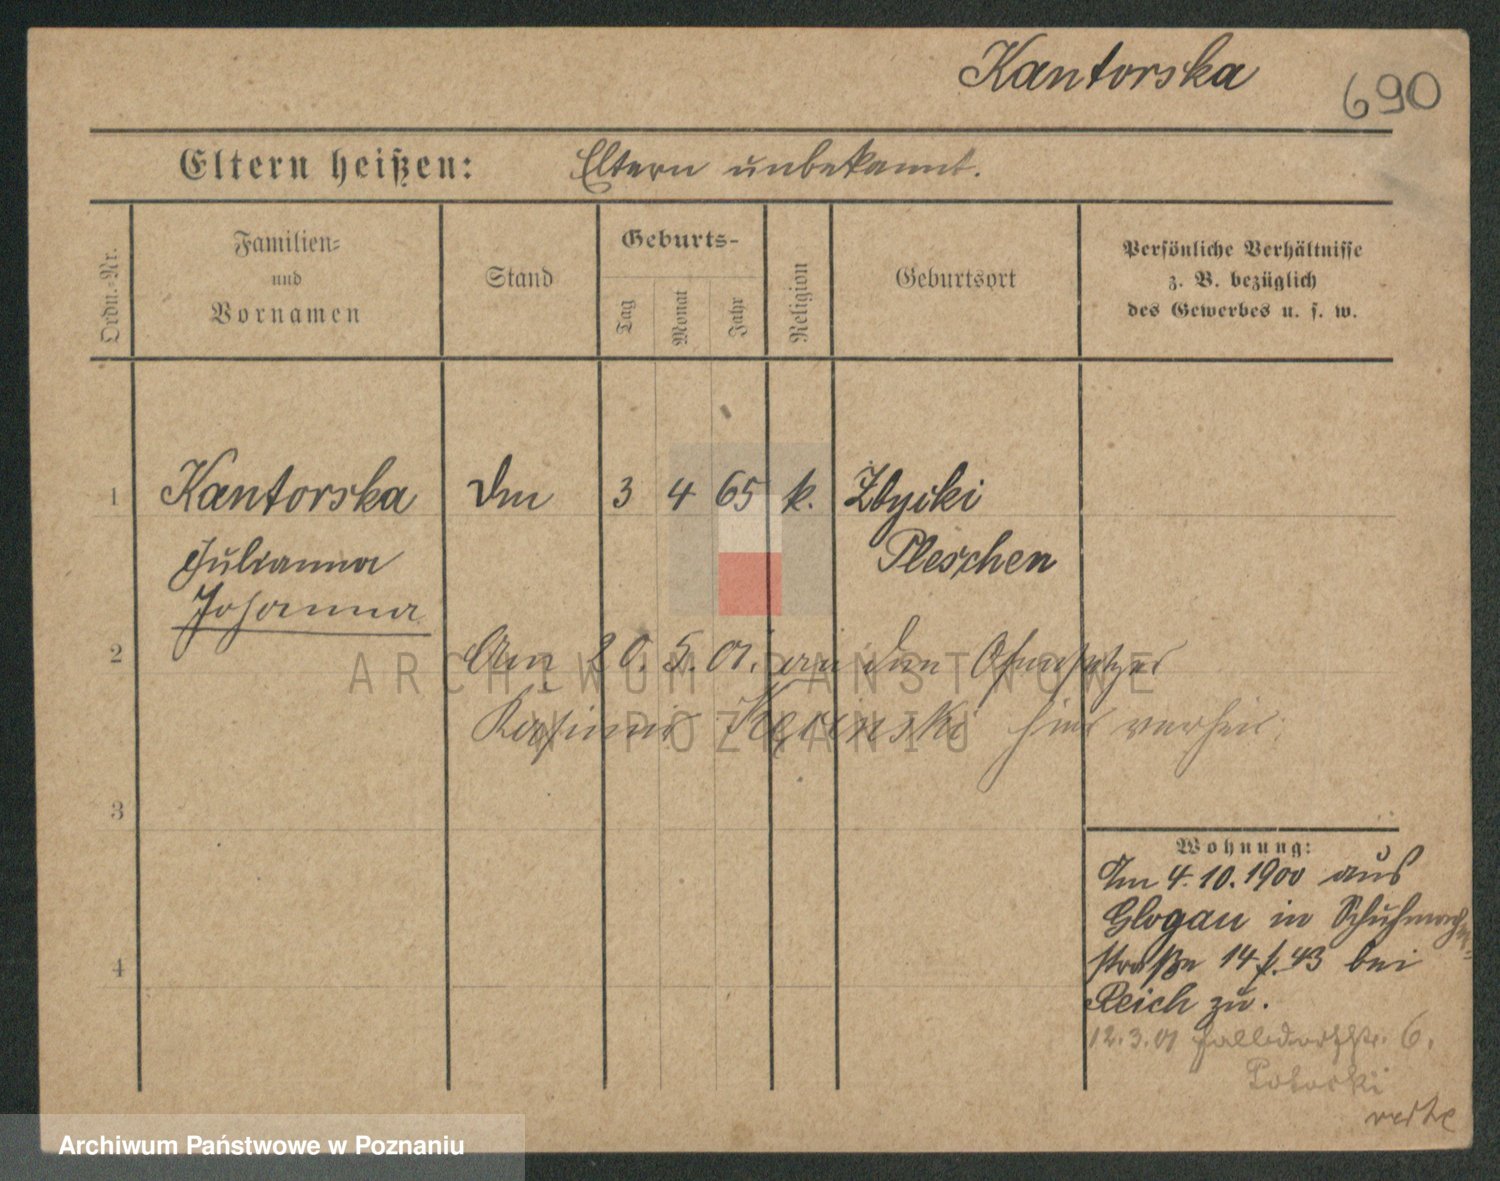 Kantorska
690
Eltern heißen: Eltern unbekannt.
Ordn.-Nr.
Familien-
und
Vornamen
Stand
Geburts-
Tag
Monat
Jahr
Religion
Geburtsort
Persönliche Verhältnisse
z. B. bezüglich
des Gewerbes u. s. w.
1 Kantorska 3 4 65 k.
Pleschen
Julianna
Johanna
2
Am 20. 5. 01. an den Ofensetzer
Kasimir hier verheir.
ARCHIWUM PAŃSTWOWE
W POZNANIU
3
4
Wohnung:
Am 4.10.1900 aus
Glogau in Schuhmacher-
straße 14 43 bei
Reich zu.
12.3.01 6.
Potocki
Archiwum Państwowe w Poznaniu